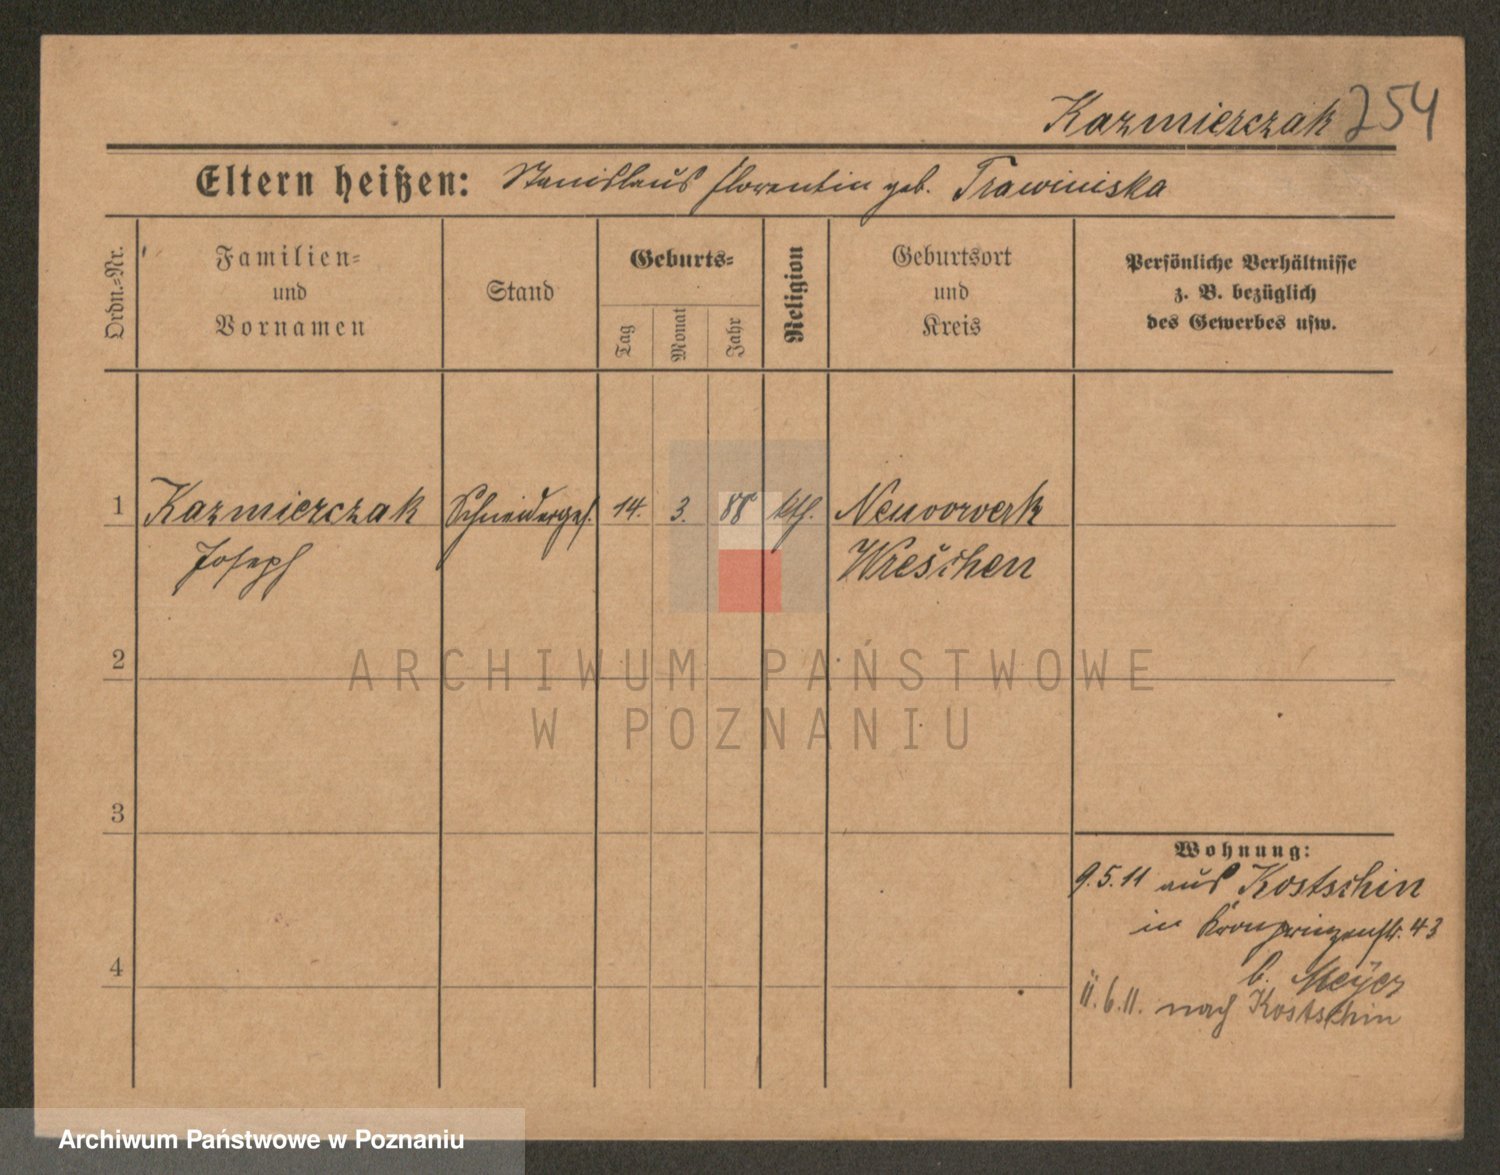 Kazmierczak 254
Eltern heißen: Stanislaus Florentin geb. Trawiniska
Ordn.-Nr.
Familien-
und
Vornamen
Stand
Geburts-
Tag
Monat
Jahr
Religion
Geburtsort
und
Kreis
Persönliche Verhältnisse
z. B. bezüglich
des Gewerbes usw.
1 Kazmierczak Schneiderges. 14. 3. 88 kth. Neuvorwerk
Joseph Wreschen
2
3
4
Wohnung:
9.5.11 aus Kostschin
in Kronprinzenstr. 43
b. Meÿer
11.6.11. nach Kostschin
ARCHIWUM PAŃSTWOWE
W POZNANIU
Archiwum Państwowe w Poznaniu